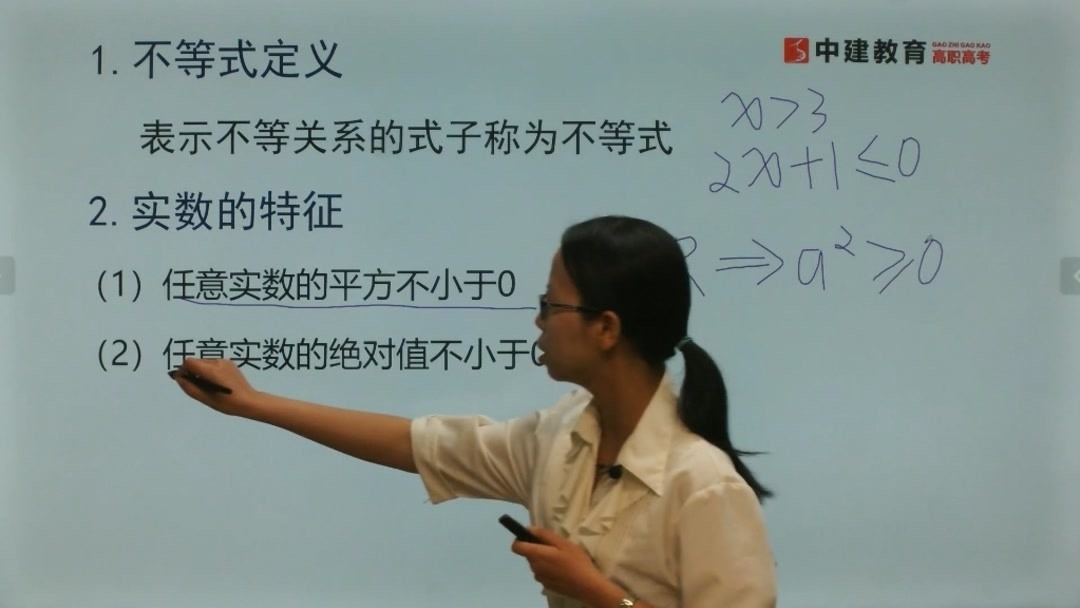 1. 不等式定义
中建教育
GAO ZHI GAO KAO
高职高考
x>3
表示不等关系的式子称为不等式
2x+1≤0
2. 实数的特征
⇒a²≥0
(1) 任意实数的平方不小于0
(2) 任意实数的绝对值不小于